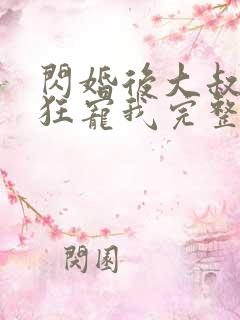 閃婚後大叔
狂寵我完整
閱園